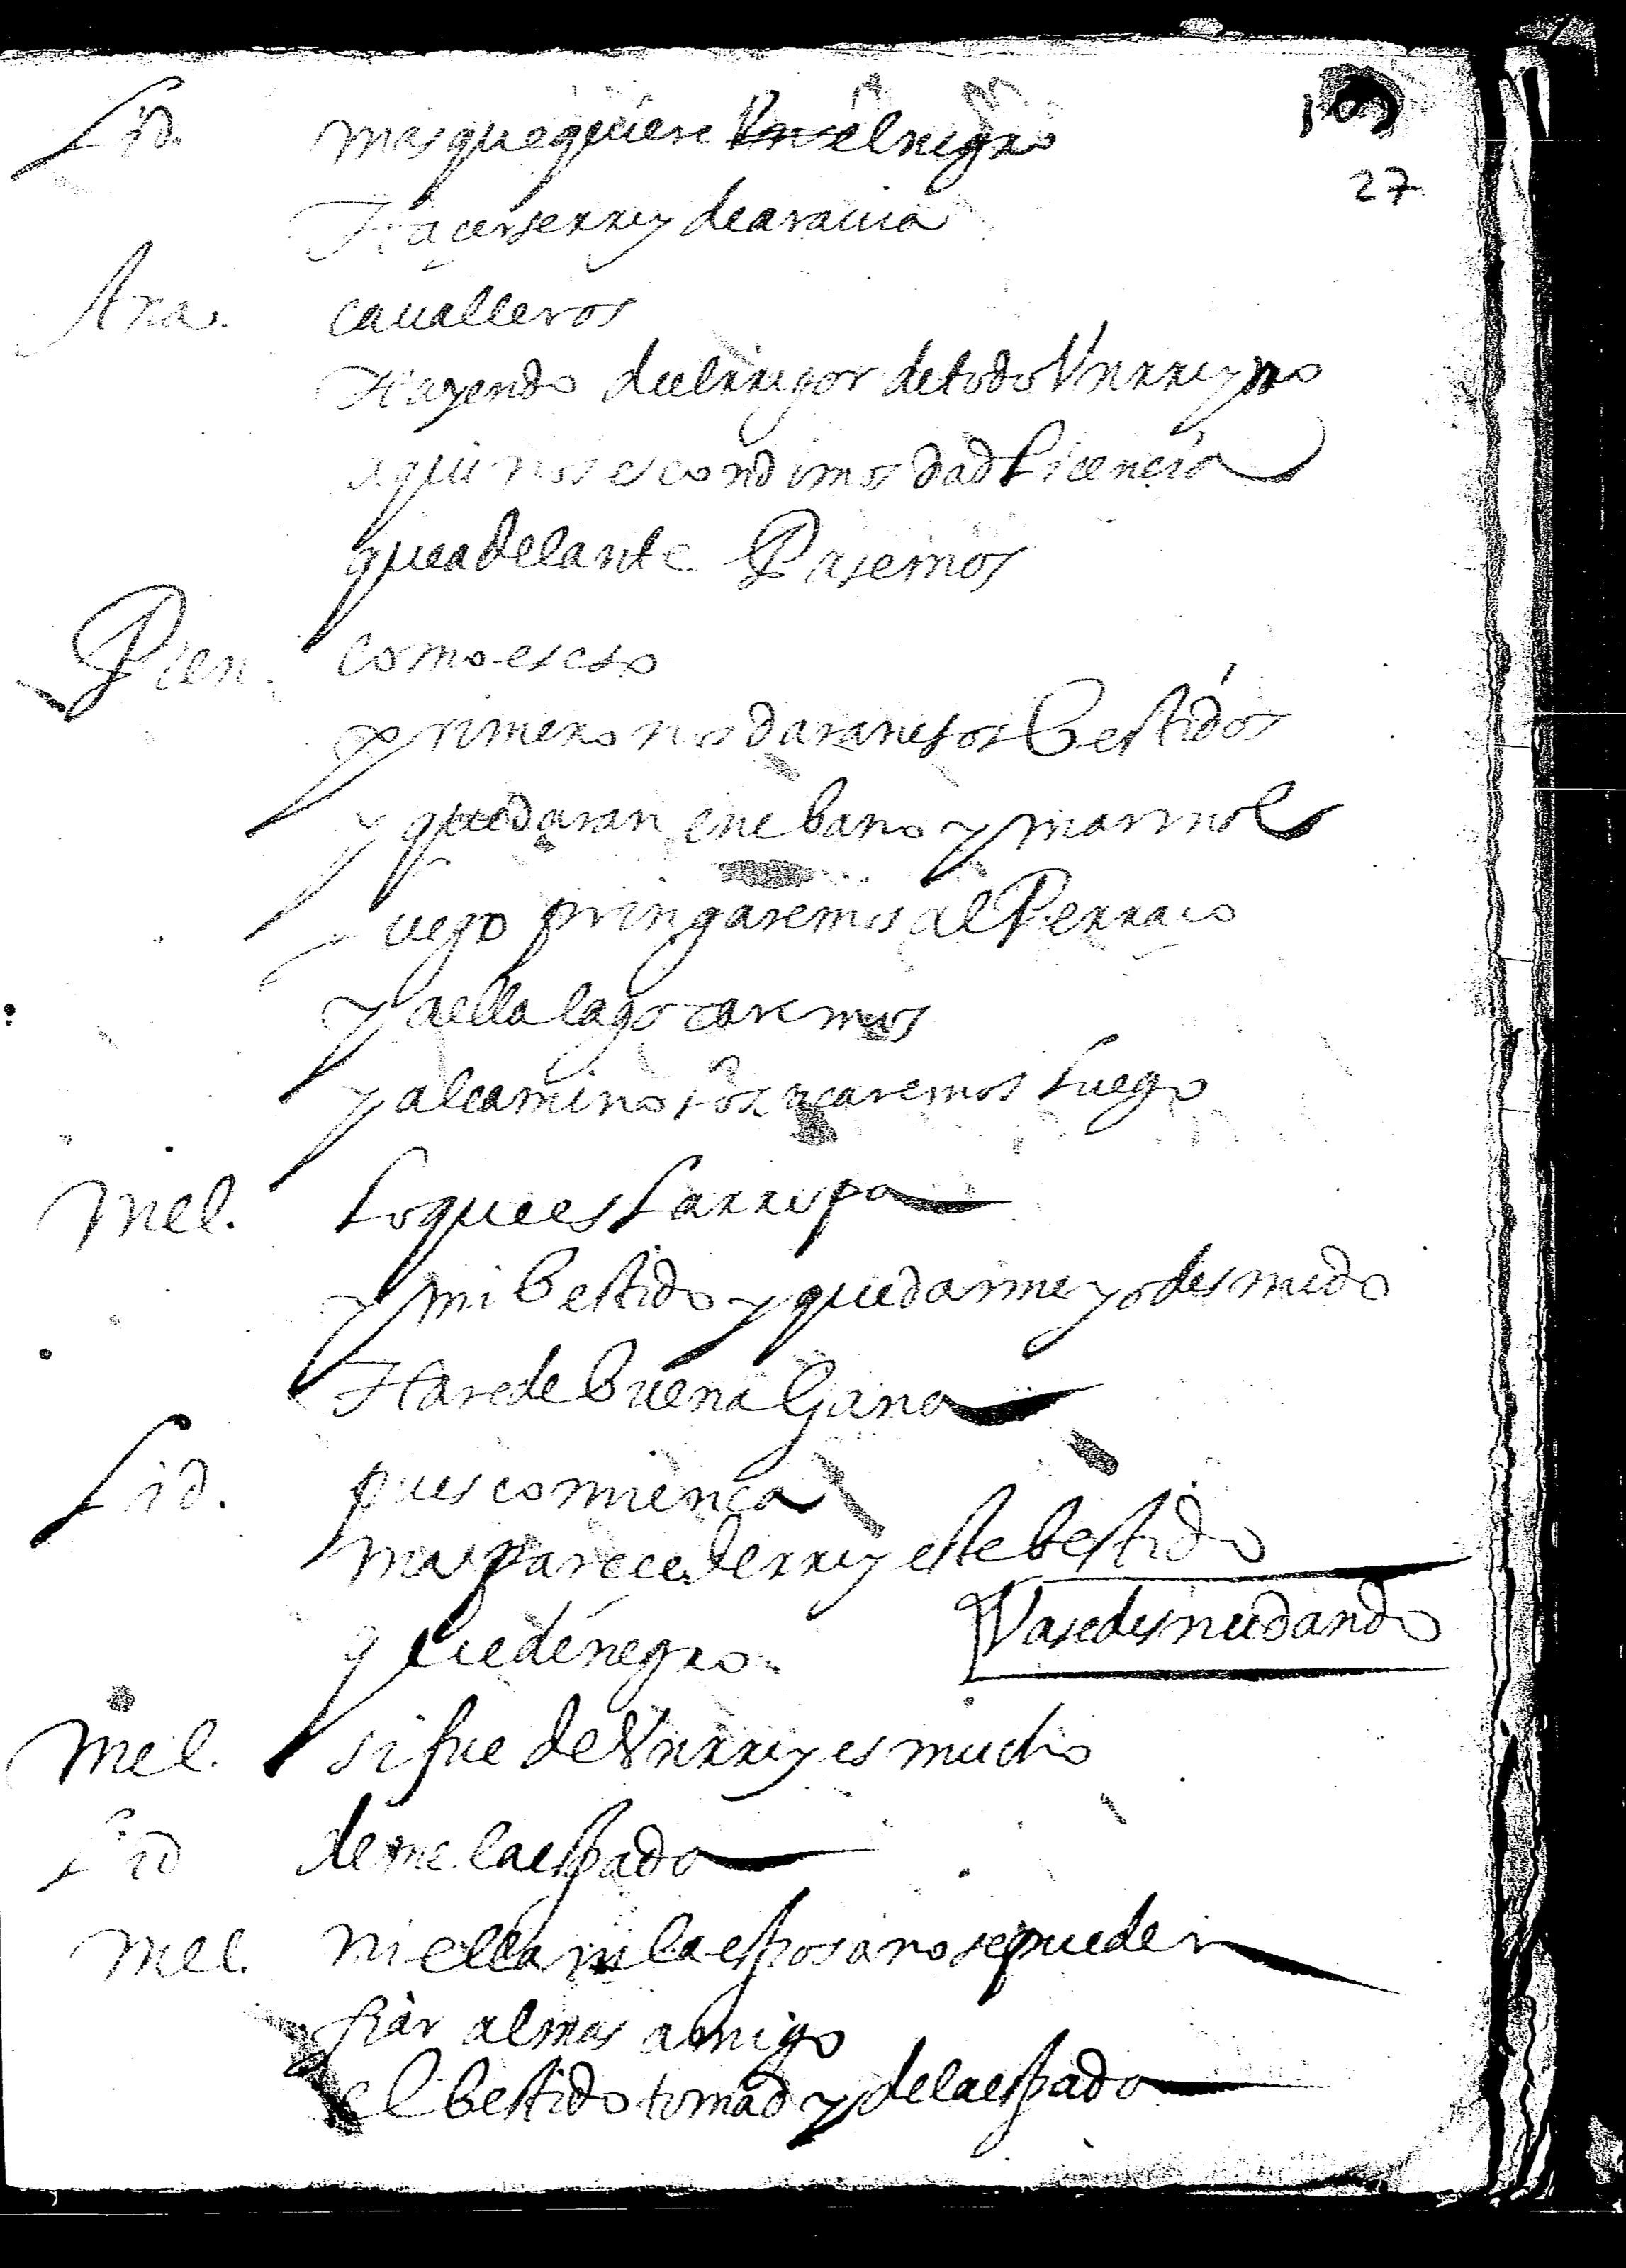 109
27
Lid. mas que quiere el negro
Haçerse rrey de arauia
Ara. caualleros
Huyendo del rrigor de todo Vn rreyno
aqui nos escondimos dad Licencia
que adelante Pasemos
Pien. como es eso
primero nos daran esos bestidos
y quedaran en ebano y marmol
luego pringaremos al Perraço
y a ella la goçaremos
y al camino los sacaremos Luego
Mel. Lo que es La rropa
y mi bestido y quedarme yo desnudo
Hare de buena Gana
Lid. pues comiença
mas parece de rrey este bestido
que de negro
Vase desnudando
Mel. si fue de Vn rrey es mucho
Lid deme la espada
Mel. ni ella ni la esposa no se pueden
fiar al mas amigo
el bestido tomad y de la espada